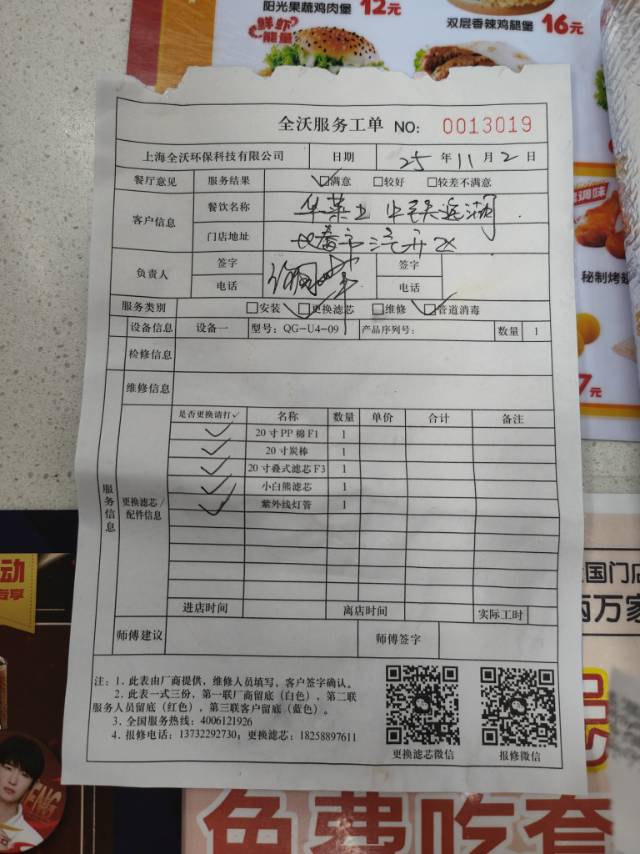 阳光果蔬鸡肉堡 12元
双层香辣鸡腿堡 16元
鲜虾
能量
全沃服务工单 NO: 0013019
上海全沃环保科技有限公司 日期 25 年 11 月 2 日
餐厅意见 服务结果 ☑满意 □较好 □较差不满意
客户信息 餐饮名称 华莱士
门店地址 长春市汽开区
负责人 签字 签字
电话 电话
服务类别 □安装 ☑更换滤芯 □维修 ☑管道消毒
设备信息 设备一 型号: QG-U4-09 产品序列号: 数量 1
检修信息
维修信息
服务信息
更换滤芯/配件信息
是否更换请打✓ 名称 数量 单价 合计 备注
✓ 20寸PP棉F1 1
✓ 20寸炭棒 1
✓ 20寸叠式滤芯F3 1
✓ 小白熊滤芯 1
✓ 紫外线灯管 1
进店时间 离店时间 实际工时
师傅建议 师傅签字
注: 1. 此表由厂商提供, 维修人员填写, 客户签字确认。
2. 此表一式三份, 第一联厂商留底(白色), 第二联
服务人员留底(红色), 第三联客户留底(蓝色)。
3. 全国服务热线: 4006121926
4. 报修电话: 13732292730; 更换滤芯: 18258897611
更换滤芯微信 报修微信
调味
秘制烤
7元
动
专享
国门店
两万家
免费吃套